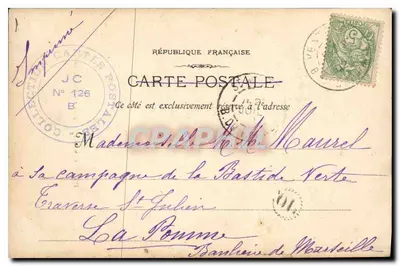 Imprimé
RÉPUBLIQUE FRANÇAISE
COLLECTION CARTES POSTALES
JC
N° 126
B
CARTE POSTALE
Ce côté est exclusivement réservé à l'adresse
Mademoiselle Maurel
à sa campagne de la Bastide Verte
Traverse St Julien
La Pomme
Banlieue de Marseille